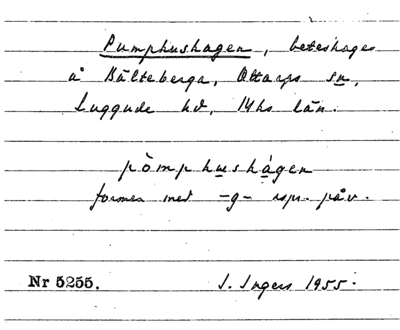 Pumphushagen, beteshage
å Bälteberga, Ottarps sn,
Luggude hd, Mhs län.
pòmphushágen
formen med -g- rspr. påv.
Nr 5255. I. Ingers 1955.